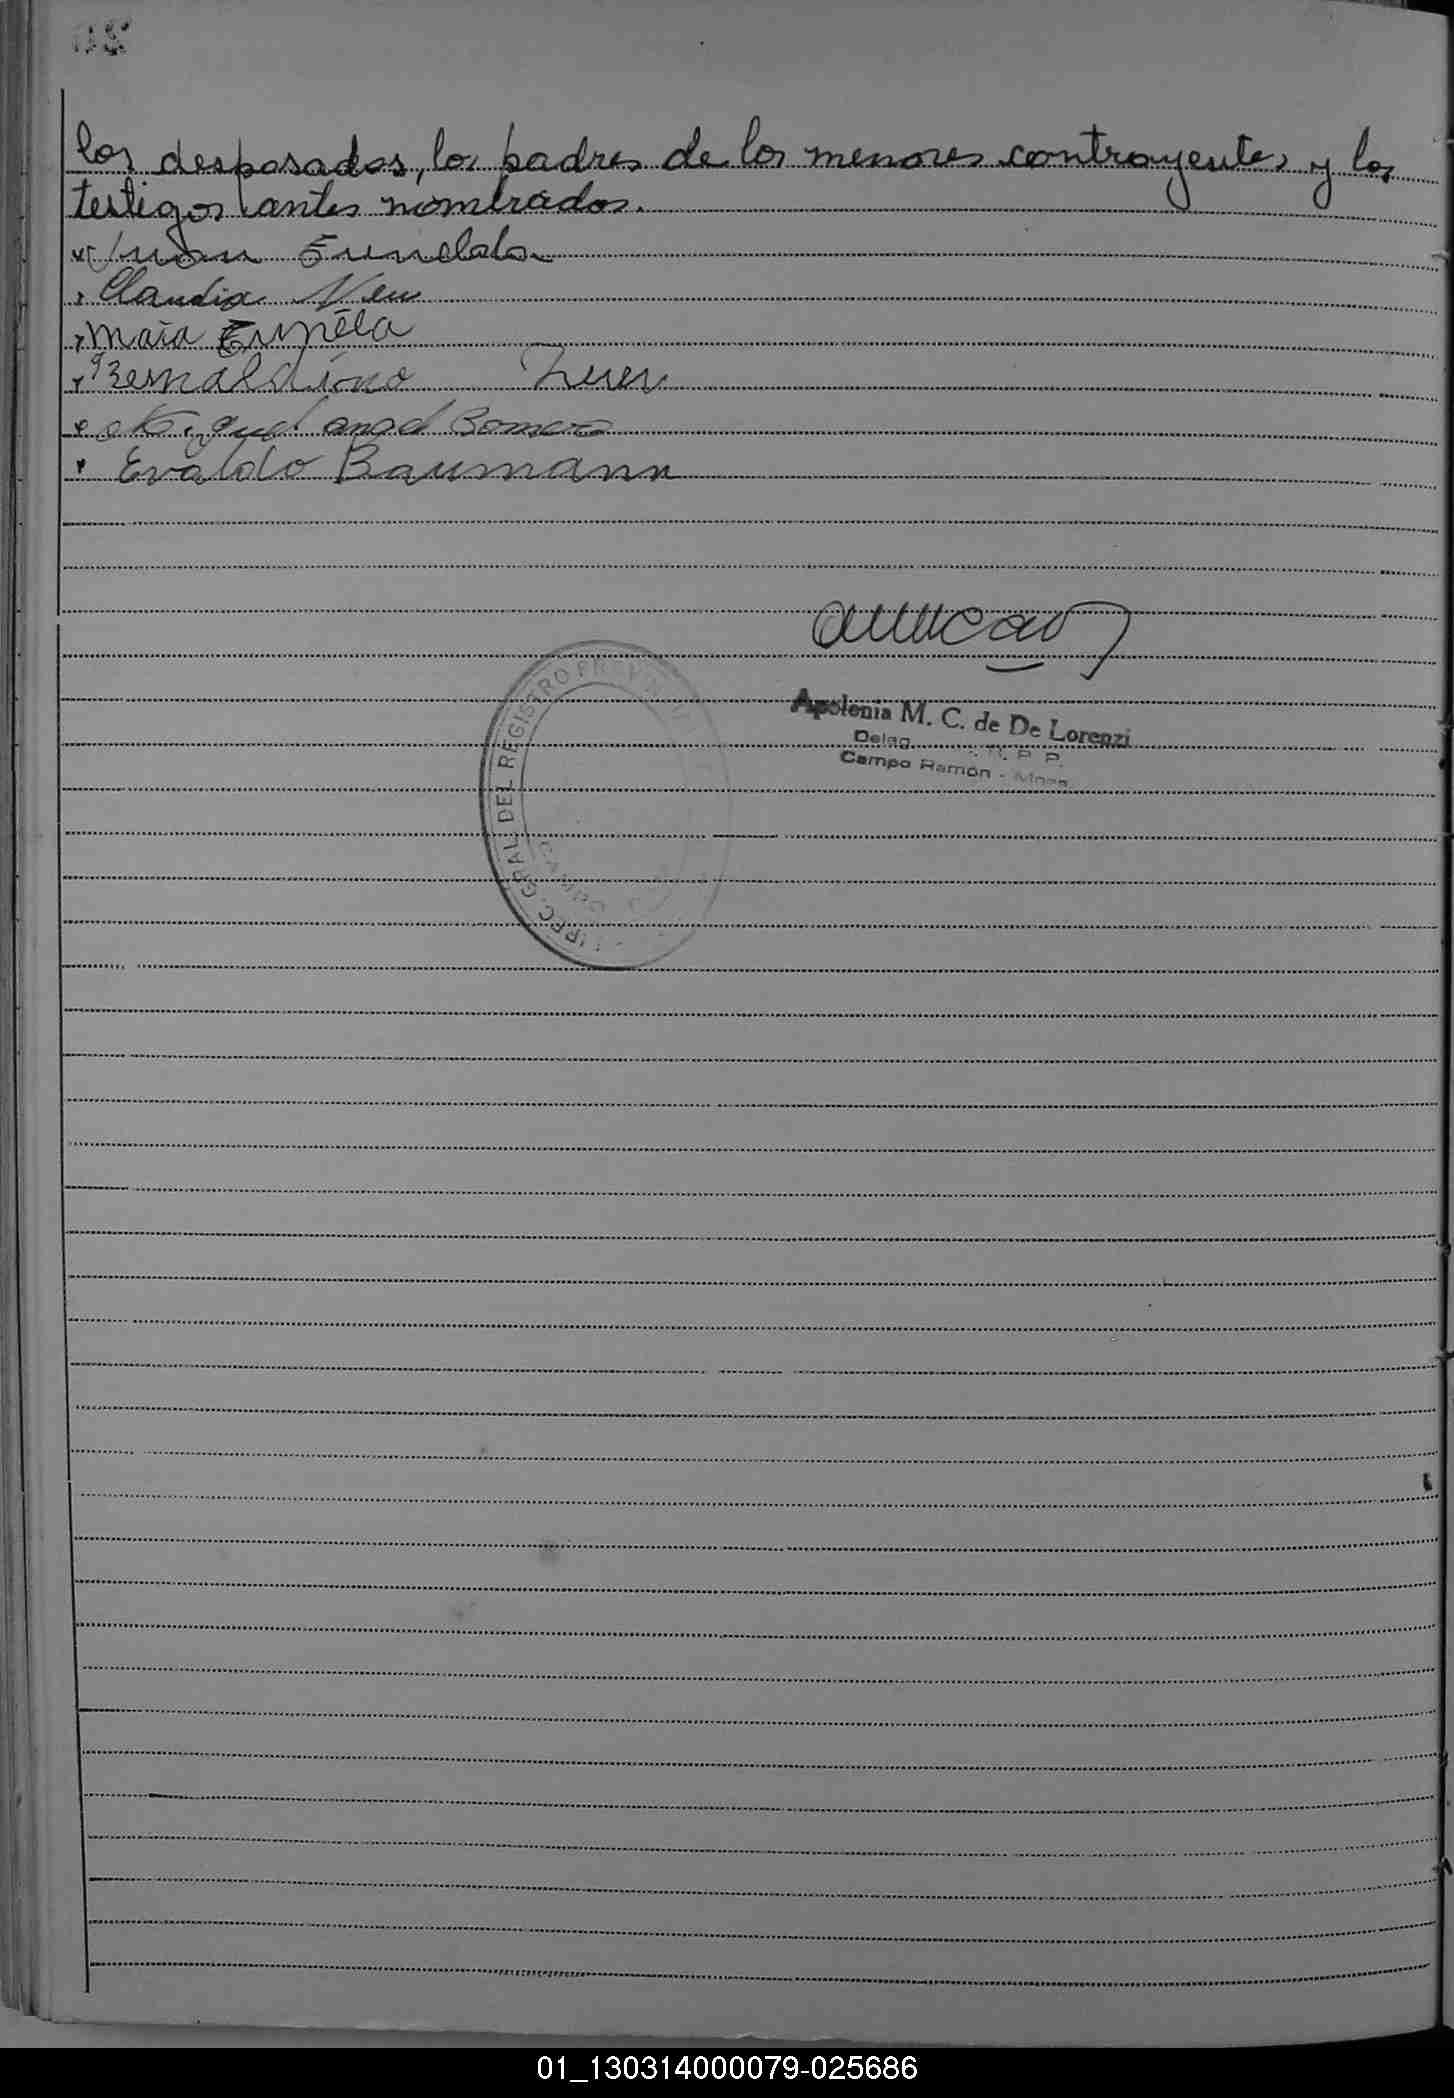 los desposados, los padres de los menores contrayentes y los
testigos antes nombrados.
Juan
Claudia Neu
Bernaldino
Miguel angel Romero
Evaldo Baumann
Apolenia M. C. de De Lorenzi
Deleg. R. P. P.
Campo Ramón - Mnes
GRAL. DEL REGISTRO PROVINCIAL
01_130314000079-025686